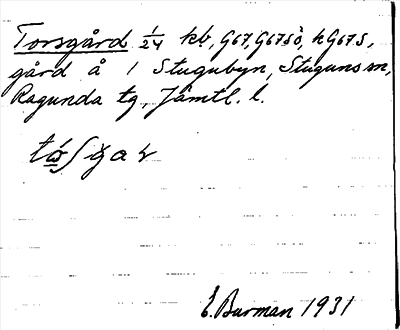 Torsgård 1/24 kb, G67, G67SÖ, hG67S,
gård å 1 Stugubyn, Stuguns sn,
Ragunda tg, Jämtl. l.
E. Burman 1931